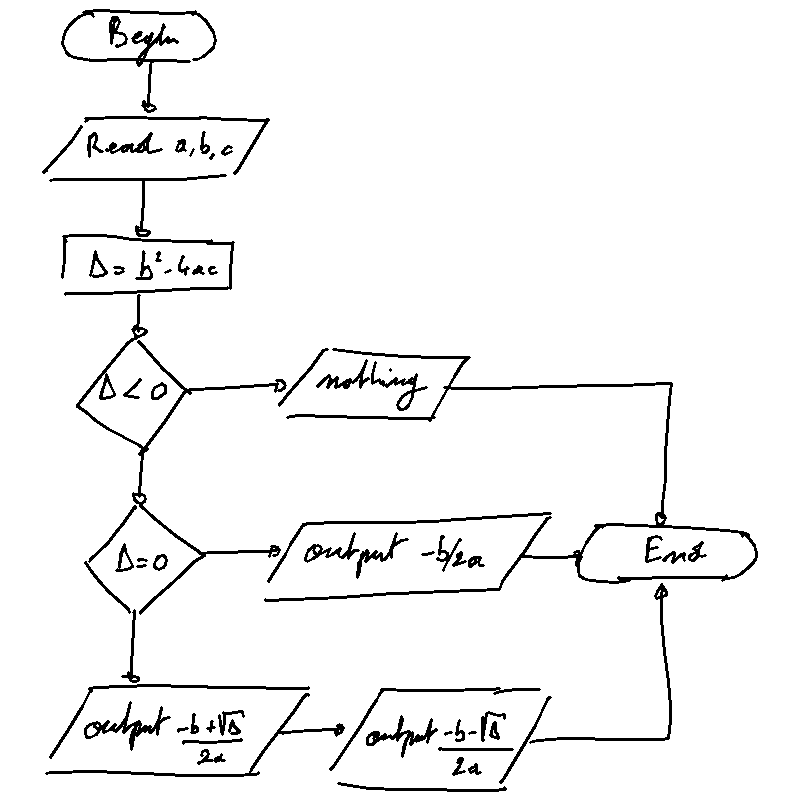 Begin
Read a,b,c
Δ = b²-4ac
Δ < 0
nothing
Δ=0
output -b/2a
End
output (-b+√Δ)/2a
output (-b-√Δ)/2a